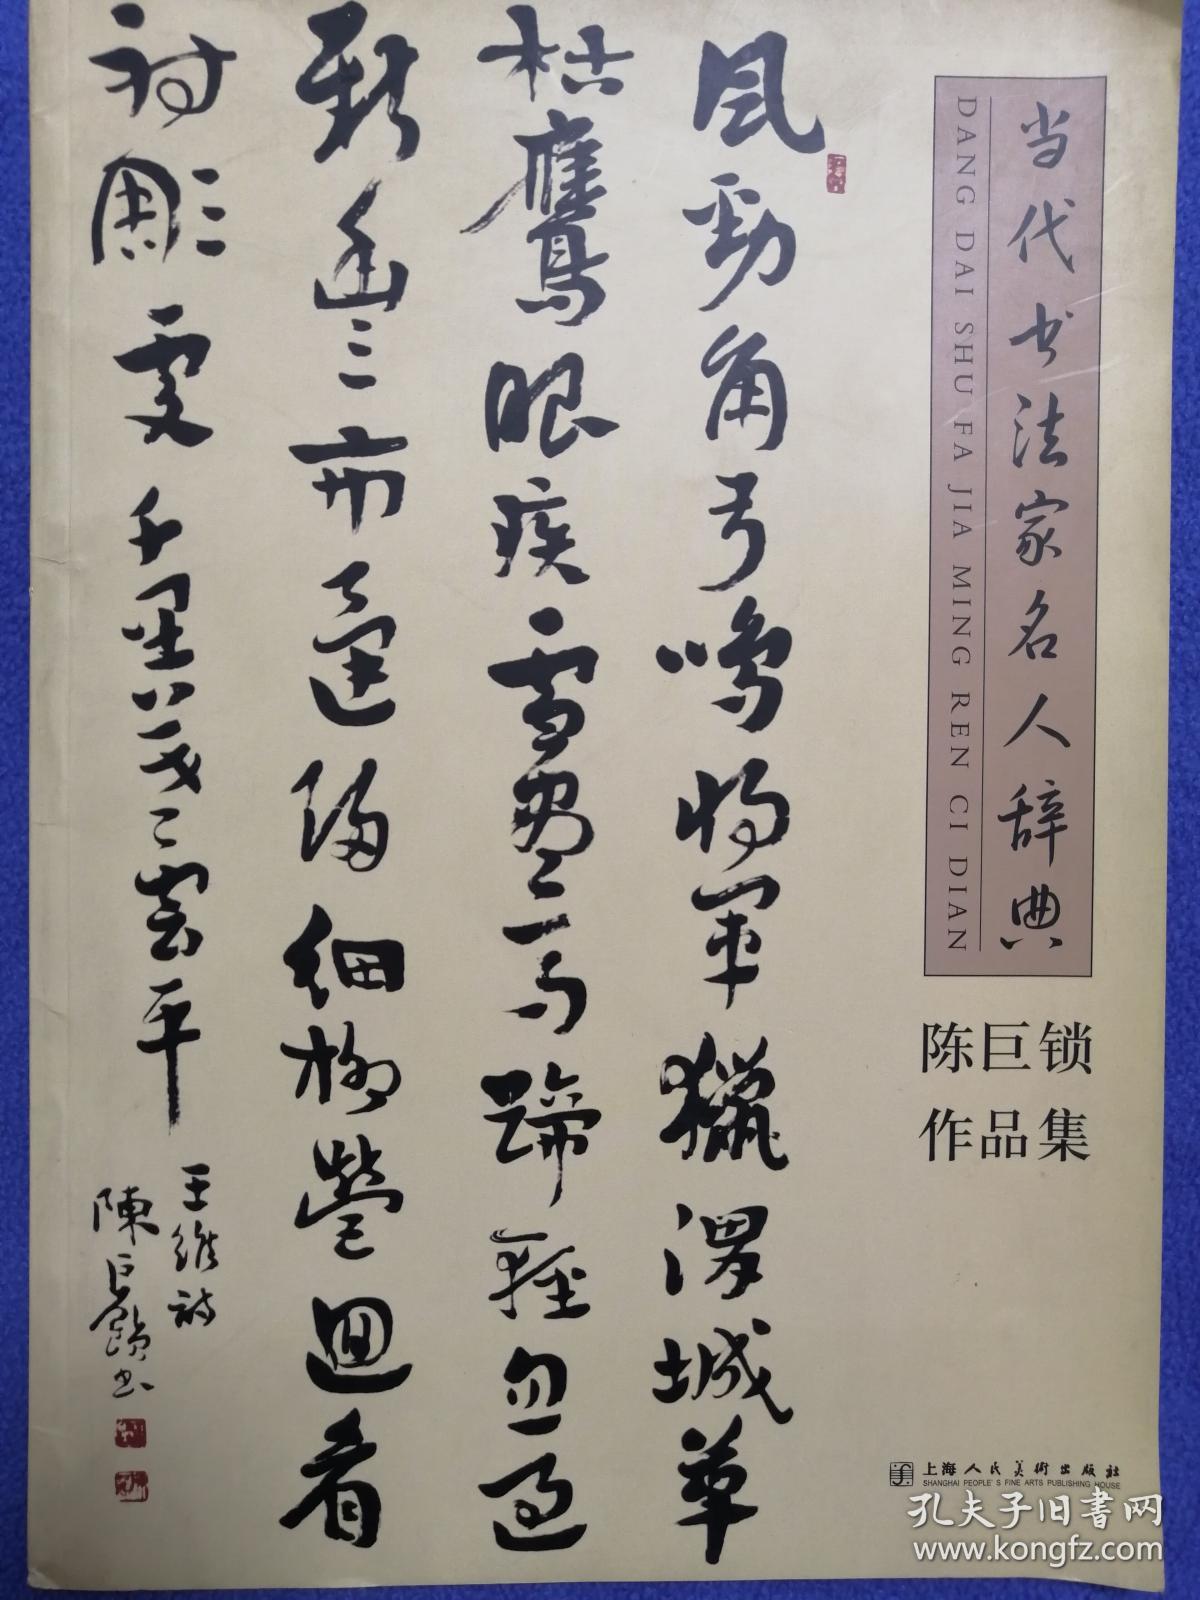 当代书法家名人辞典
DANG DAI SHU FA JIA MING REN CI DIAN
陈巨锁
作品集
風勁角弓鳴將軍獵渭城草
枯鷹眼疾雪盡馬蹄輕忽過
新豐市還歸細柳營迴看
射彫處千里暮雲平
王維詩
陳巨鎖書
上海人民美術出版社
SHANGHAI PEOPLE'S FINE ARTS PUBLISHING HOUSE
孔夫子旧书网
www.kongfz.com